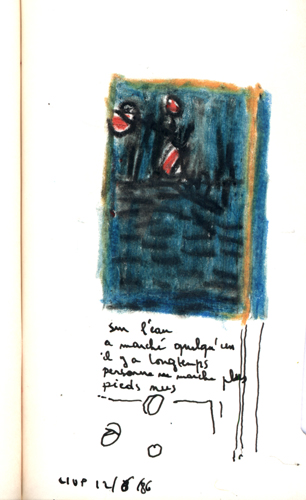 sur l'eau
a marché quelqu'un
il y a longtemps
personne ne marche plus
pieds nus
12/8/86